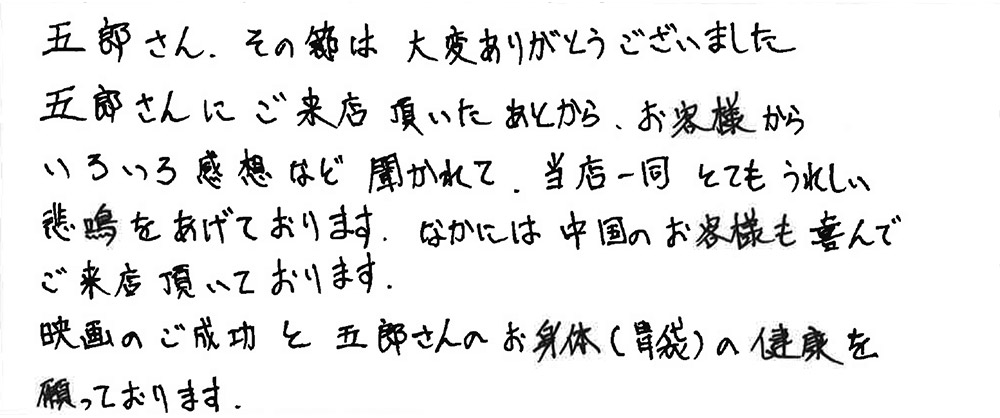 五郎さん、その節は 大変ありがとうございました
五郎さんに ご来店 頂いた あとから、お客様から
いろいろ 感想 など 聞かれて、当店一同 とても うれしい
悲鳴を あげて おります。なかには 中国の お客様も 喜んで
ご来店 頂いて おります。
映画の ご成功 と 五郎さんの お身体(胃袋)の 健康を
願っております。